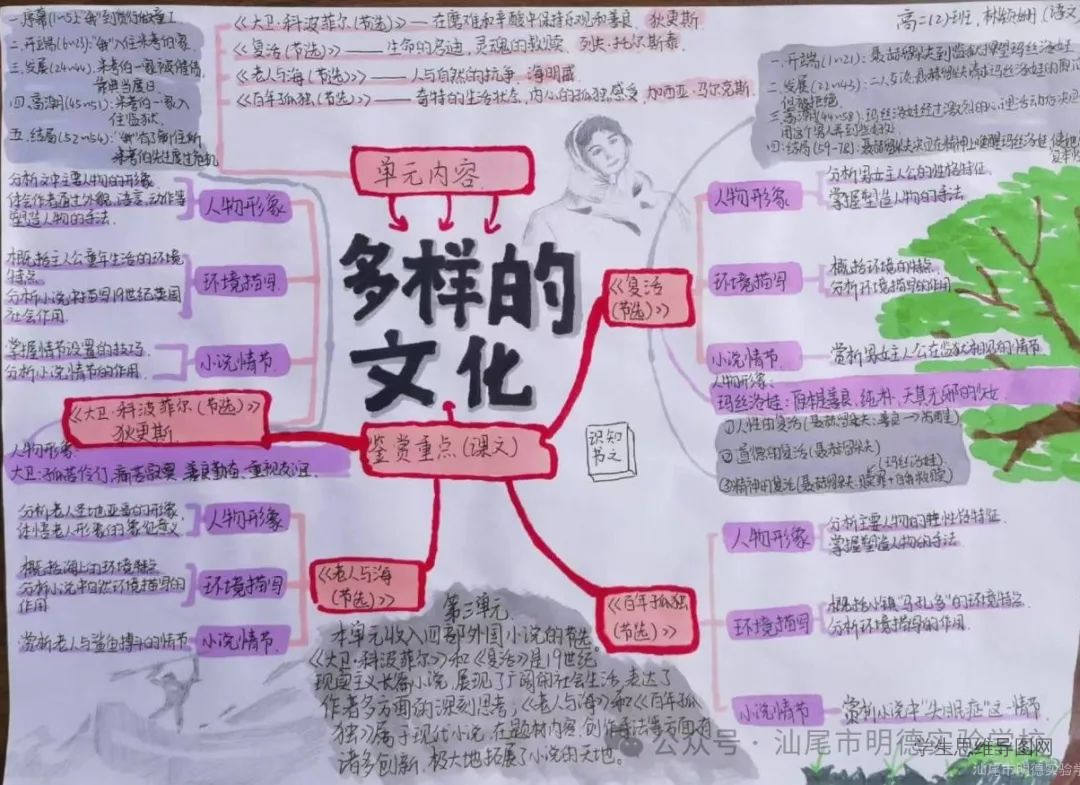 《大卫·科波菲尔(节选)》——在磨难和辛酸中保持乐观和善良. 狄更斯
《复活(节选)》——生命的名迪,灵魂的救赎. 列夫·托尔斯泰
《老人与海(节选)》——人与自然的抗争. 海明威
《百年孤独(节选)》——奇特的生活状态,内心的孤独感受. 加西亚·马尔克斯.
高二(2)班,
一.序幕(1~5):"我"到货行做童工
二.开端(6~23):"我"入住米考伯家.
三.发展(24~44):米考伯一家
典当度日
四.高潮(45~51):米考伯一家入
住监狱.
五.结局(52~54):
一.开端(1~21):
二.发展(22~43):
三.高潮(44~58):玛丝洛娃经过激烈的心理活动
四.结局(59~78):
单元内容
多样的
文化
鉴赏重点(课文)
识知
书之
《大卫·科波菲尔(节选)》
狄更斯.
人物形象
分析文中主要人物的形象
结合作者通过外貌,语言,动作等
塑造人物的手法.
环境描写
概括主人公童年生活的环境
特点
分析小说中描写19世纪英国
社会作用.
小说情节
掌握情节设置的技巧.
分析小说情节的作用.
人物形象:
大卫:孤苦伶仃,善良勤奋、重视友谊.
《复活
(节选)》
人物形象
分析男女主人公的性格特征.
掌握塑造人物的手法.
环境描写
概括环境的特点.
分析环境描写的作用
小说情节
赏析男女主人公在监狱相见的情节
人物形象:
玛丝洛娃:善良,纯朴,天真无邪的少女
①人性的复活
②道德的复活(聂赫留朵夫)
③精神的复活
《老人与海
(节选)》
人物形象
分析老人圣地亚哥的形象.
体悟老人形象的象征意义
环境描写
概括海上的环境特点
分析小说中自然环境描写的
作用
小说情节
赏析老人与鲨鱼搏斗的情节
《百年孤独
(节选)》
人物形象
分析主要人物的性格特征.
掌握塑造人物的手法
环境描写
概括小镇"马孔多"的环境特点
分析环境描写的作用.
小说情节
赏析小说中"失眠症"这一情节.
第三单元
本单元收入四部外国小说的节选。
《大卫·科波菲尔》和《复活》是19世纪
现实主义长篇小说,展现了广阔的社会生活,表达了
作者多方面的深刻思考;《老人与海》和《百年孤
独》属于现代小说,在题材内容、创作手法等方面有
诸多创新,极大地拓展了小说的天地。
公众号·汕尾市明德实验学校
学生思维导图网
汕尾市明德实验学